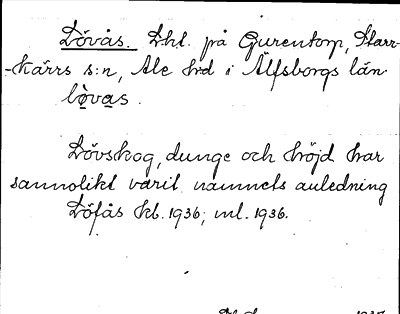 Lövås. Lht. på Gurentorp, Starr-
-kärrs s:n, Ale hrd i Älfsborgs län.
lø̀vas.
Lövskog, dunge och höjd har
sannolikt varit namnets anledning
Löfås kb. 1936; ml. 1936.